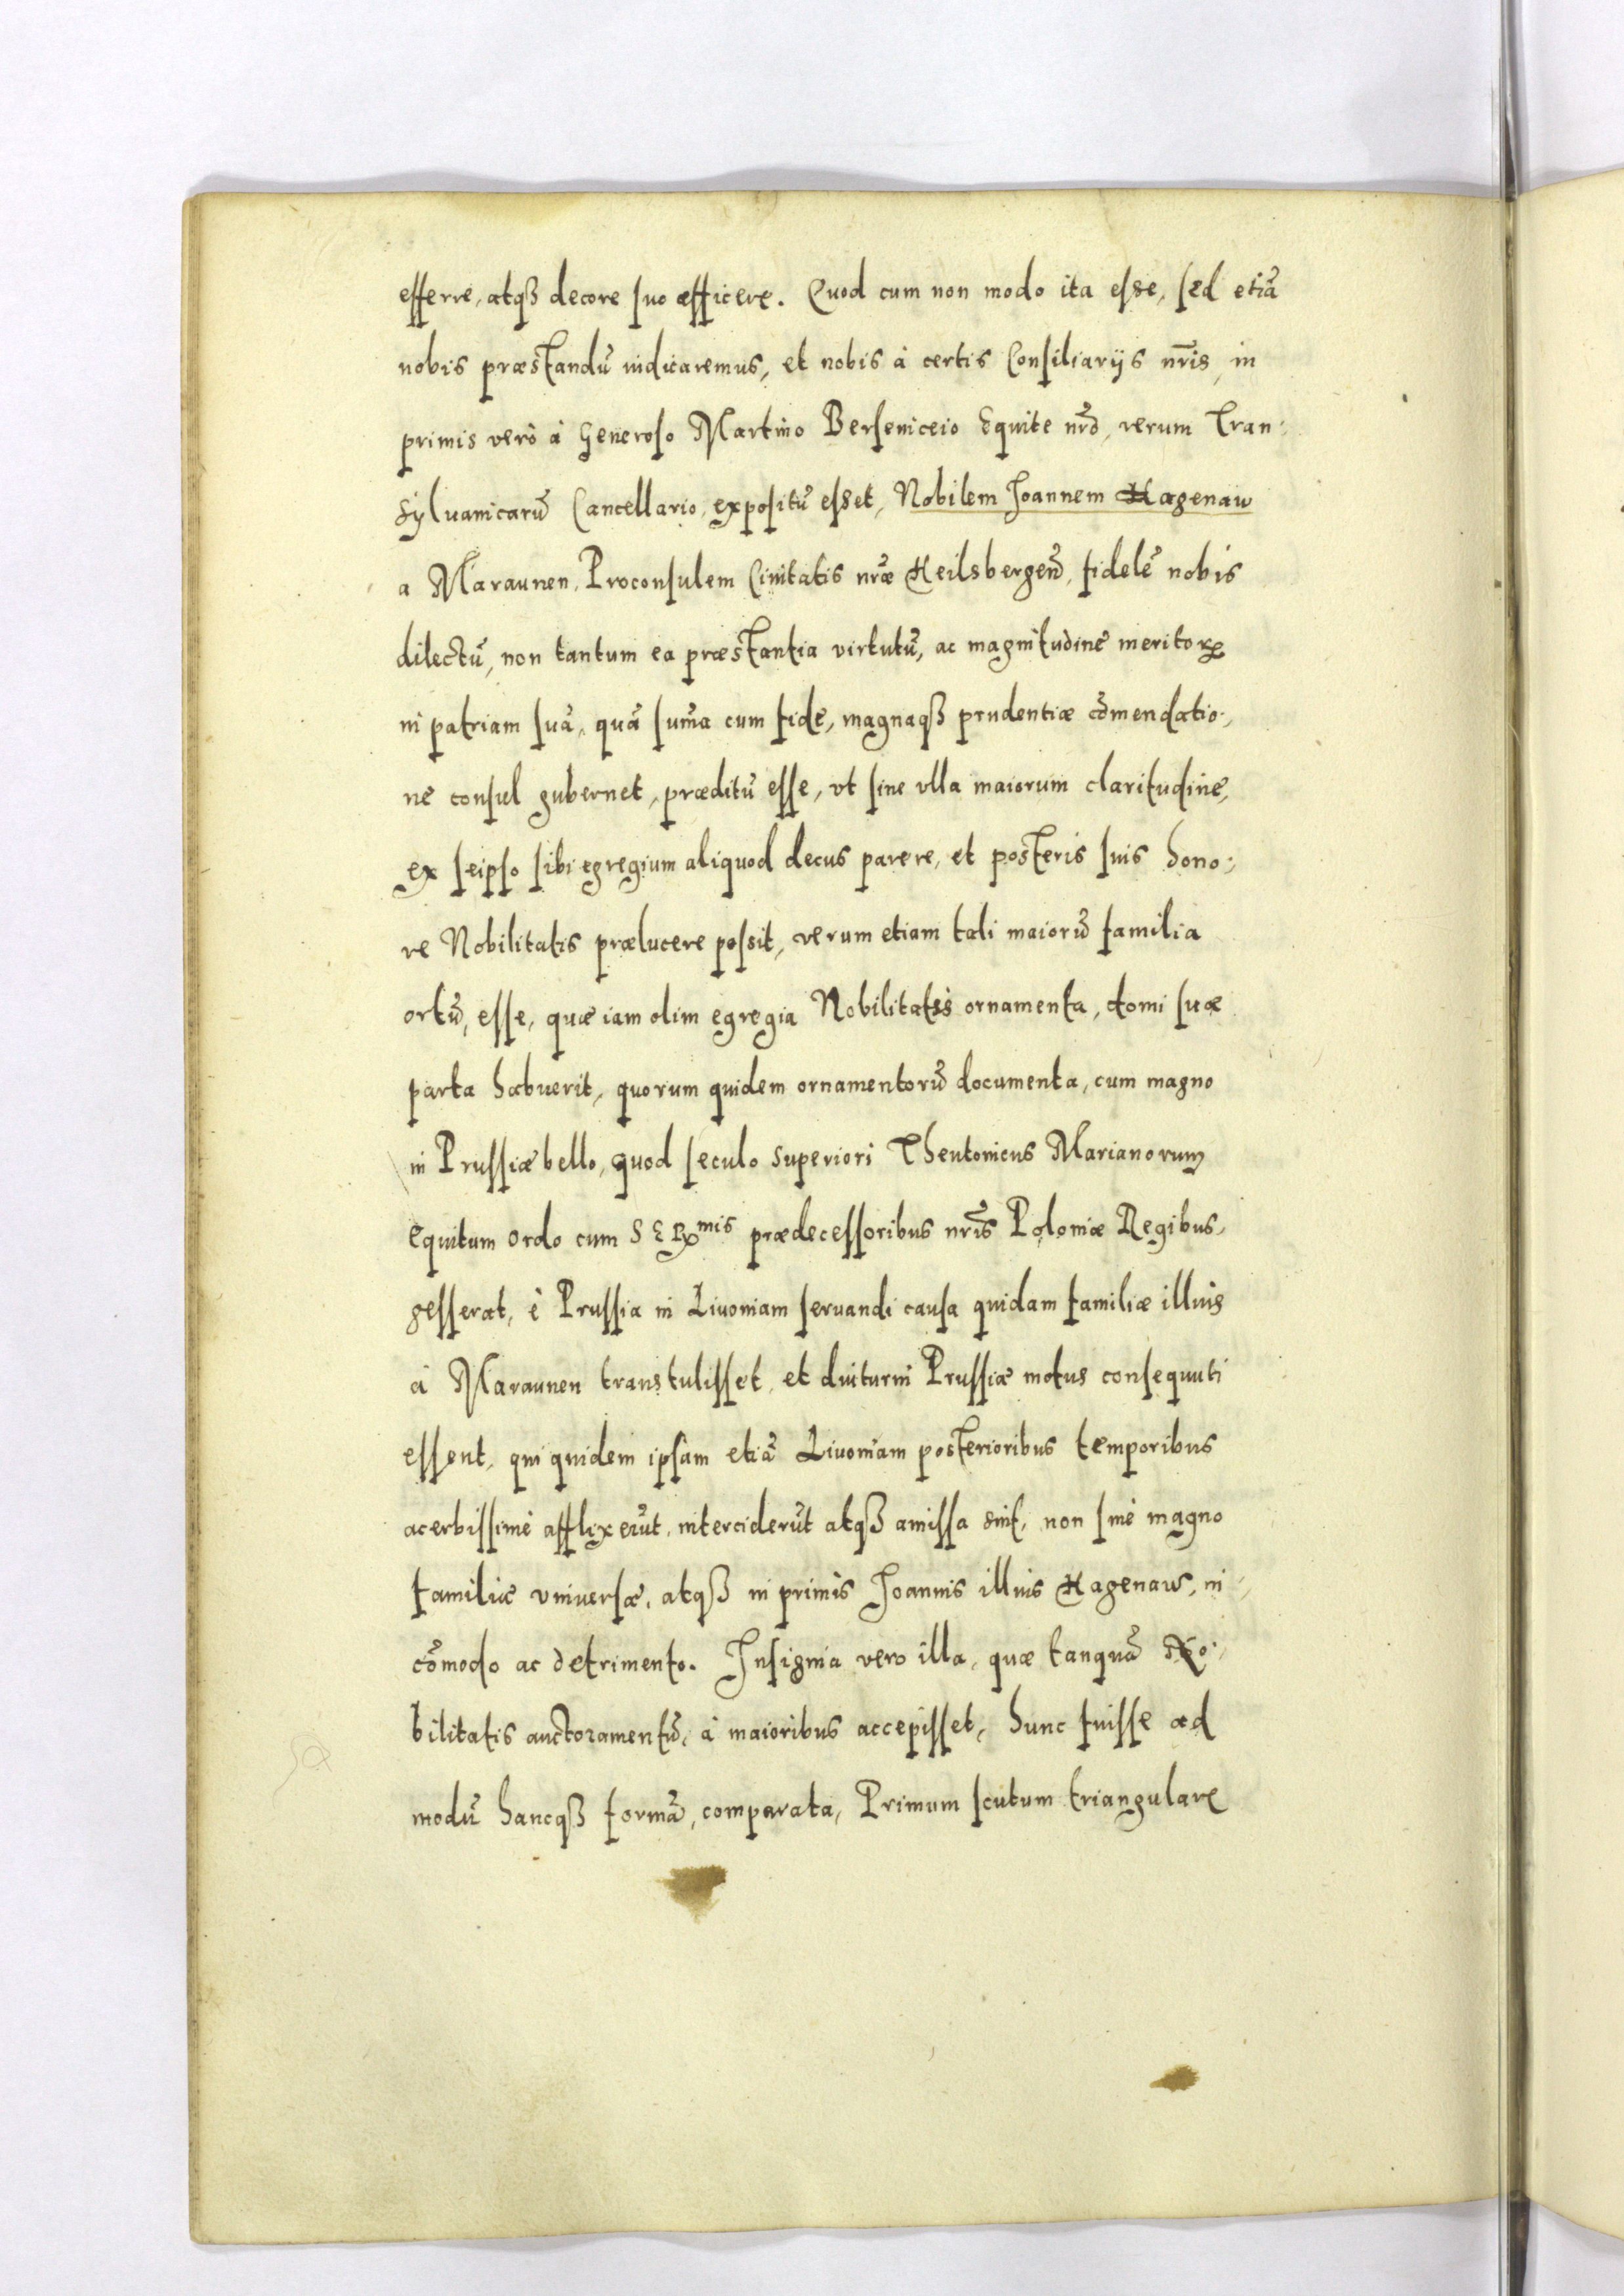 efferre, atqꝫ decore suo afficere. Quod cum non modo ita esse, sed etiã
nobis præstandũ iudicaremus, et nobis à certis Consiliarijs nr̃is, in
primis verò à Generoso Martino Berseniceio Equite nr̃o, rerum Tran-
sylvanicarũ Cancellario, expositũ esset, Nobilem Joannem Hagenaw
a Maraunen, Proconsulem Civitatis nr̃æ Heilsbergeñ, fidelẽ nobis
dilectũ, non tantum ea præstantia virtutũ, ac magnitudine meritoꝝ
in patriam suã, quã sum̃a cum fide, magnaqꝫ prudentiæ cõmendatio-
ne consul gubernet, præditũ esse, vt sine vlla maiorum claritudine,
ex seipso sibi egregium aliquod decus parere, et posteris suis hono-
re Nobilitatis prælucere possit, verum etiam tali maiorũ familia
ortũ, esse, quæ iam olim egregia Nobilitatis ornamenta, domi suæ
parta habuerit, quorum quidem ornamentorũ documenta, cum magno
in Prussiæ bello, quod seculo superiori Theutonicus Marianorum
Equitum ordo cum SERmis prædecessoribus nr̃is Poloniæ Regibus,
gesserat, è Prussia in Livoniam servandi causa quidam familiæ illius
à Maraunen transtulisset, et diuturni Prussiæ motus consequuti
essent, qui quidem ipsam etiã Livoniam posterioribus temporibus
acerbissimè afflixerũt, interciderũt atqꝫ amissa sint, non sinè magno
familiæ vniversæ, atqꝫ in primis Joannis illius Hagenaw, in-
cõmodo ac detrimento. Insignia vero illa, quæ tanquã No-
bilitatis auctoramentũ, à maioribus accepisset, hunc fuisse ad
modũ hancqꝫ formã, comparata, Primum scutum triangulare